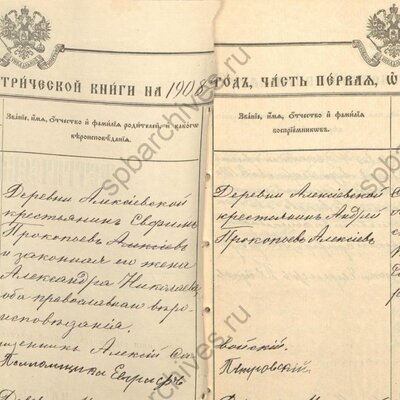 ТРИЧЕСКОЙ КНИГИ НА 1908 ГОДЪ, ЧАСТЬ ПЕРВАЯ, Ѡ
Званіе, имя, отчество и фамилія родителей, и какого вѣроисповѣданія.
Деревни Алексѣевской
крестьянинъ
Прокопьевъ Алексѣевъ
и законная его жена
Александра Николаева,
оба православнаго вѣро-
исповѣданія.
Алексій
Званіе, имя, отчество и фамилія воспріемниковъ.
Деревни Алексѣевской
крестьянинъ Андрей
Прокопьевъ Алексѣевъ
войскій.
Петровскій.
spbarchives.ru
spbarchives.ru